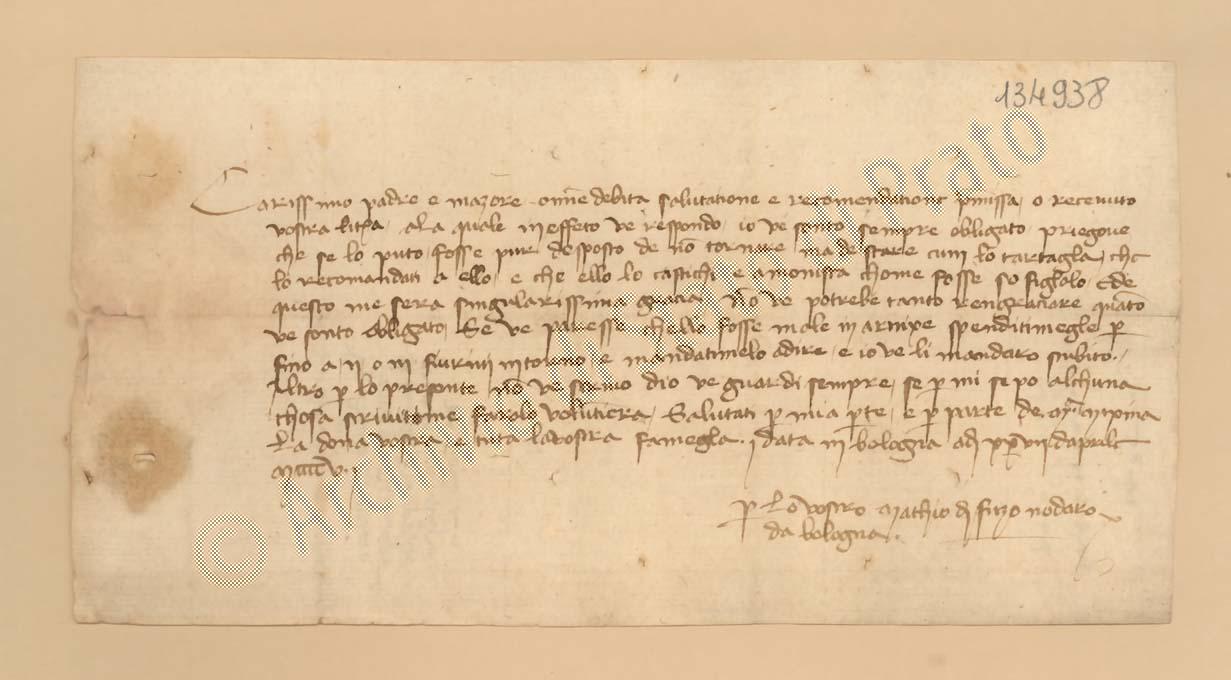 134938
Carissimo padre e mazore onne debita salutatione e recomendatione pmissa, o recevuto
vostra litra, ala quale in effeto ve respondo, io ve sonto sempre obligato priegove
che se lo puto fosse pur desposto de no tornare ma de stare cum lo tartagla, che
lo recomandati a ello, e che ello lo castichi e amonista chome fosse so figlolo, e de
questo me sera singularissima gracia. No ve potrebe tanto rengraciare quato
ve sonto obligato, Se ve paresse chello fosse male in arnixe spenditimegle p
fino a ii o iii fiurini intorno, e mandatimelo a dire, e io ve li mandaro subito.
Altro p lo presente no ve scrivo dio ve guardi sempre, se p mi se po alchuna
chosa scrivitime farolo volutiera, Salutati p mia pte, e p parte de
la dona vostra e tuta la vostra famegla. data in bologna adi xxvii d aprile
Mcccc v.
p lo vostro Mathio d nodaro
da bologna.
© Archivio di Stato di Prato